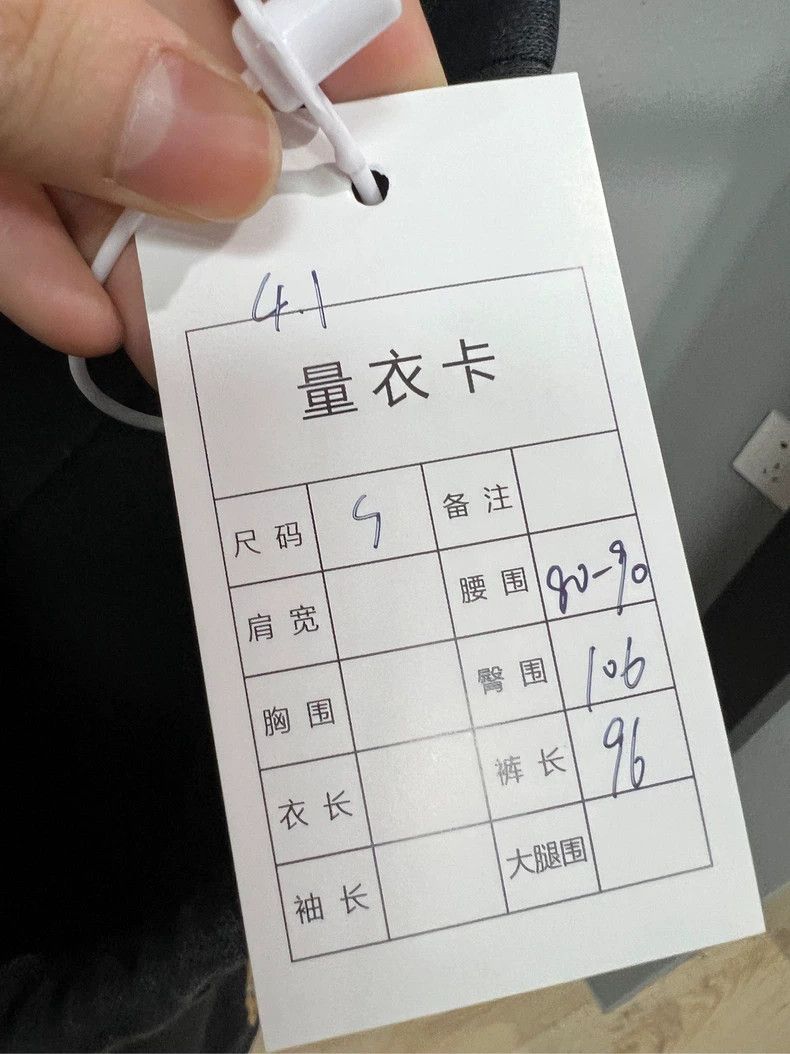 4.1
量衣卡
尺码 S 备注
肩宽 腰围 80-90
胸围 臀围 106
衣长 裤长 96
袖长 大腿围